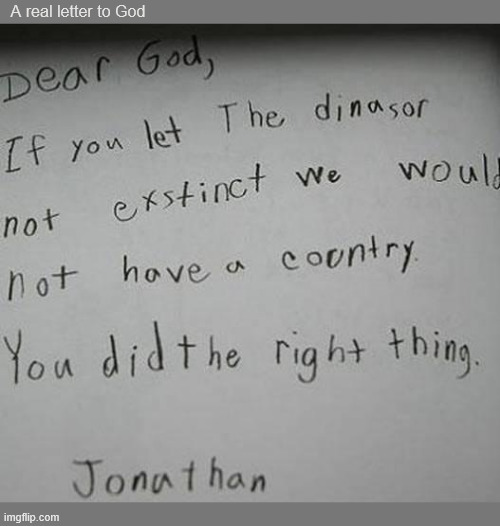 A real letter to God
Dear God,
If you let The dinasor
not exstinct we would
not have a coontry.
You did the right thing.
Jonathan
imgflip.com